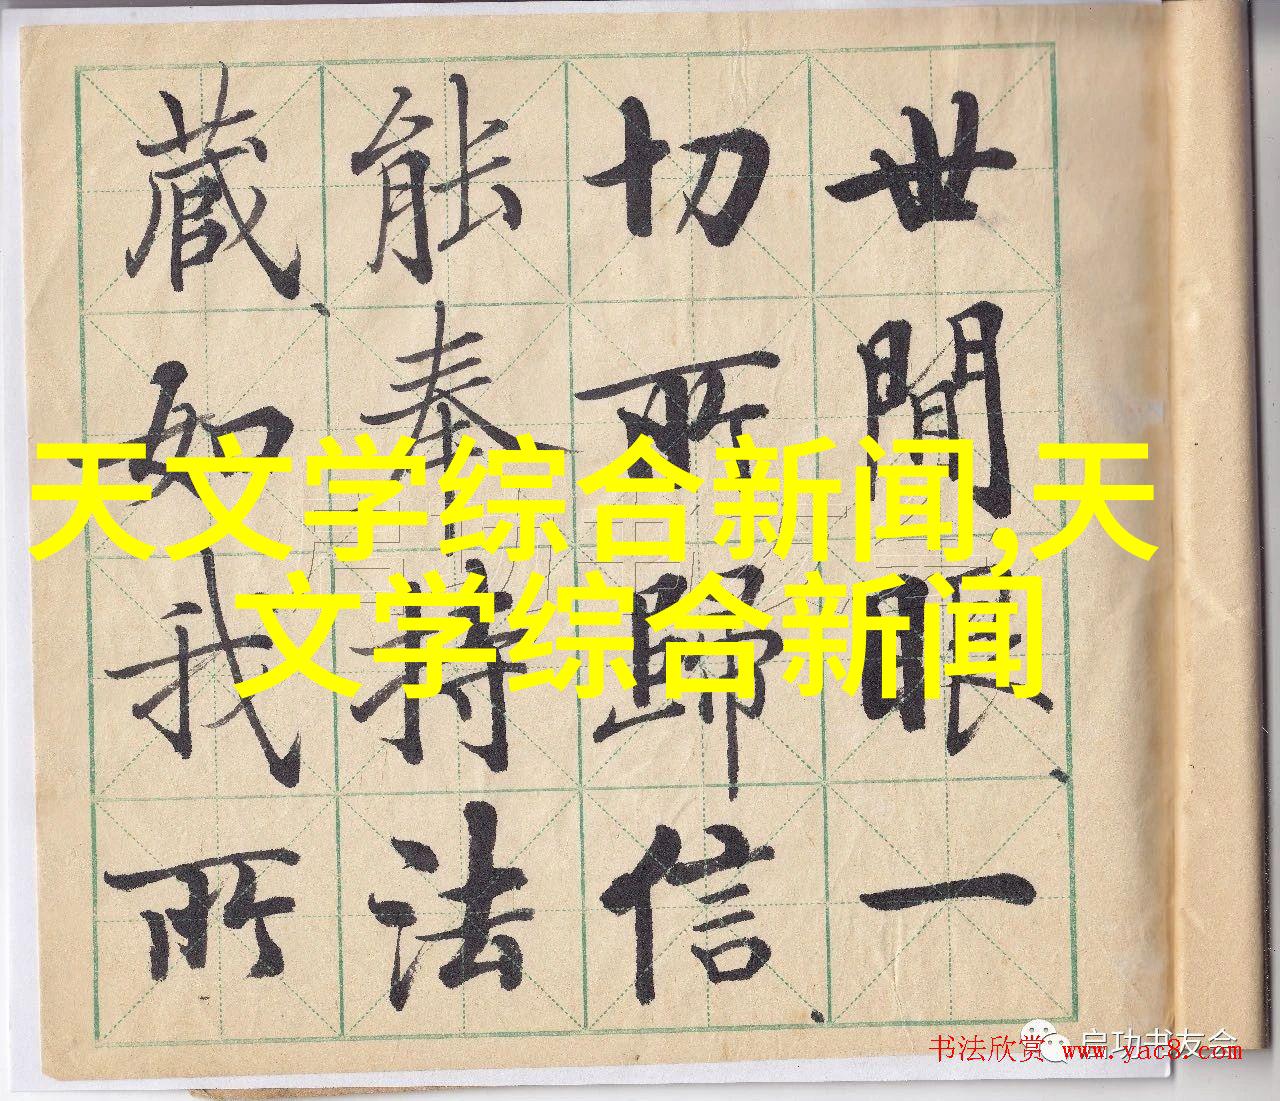 世間眼一
切所歸信
能奉持法
藏如我所
天文学综合新闻,天
文学综合新闻
启功书友会
书法欣赏 www.yac8.com